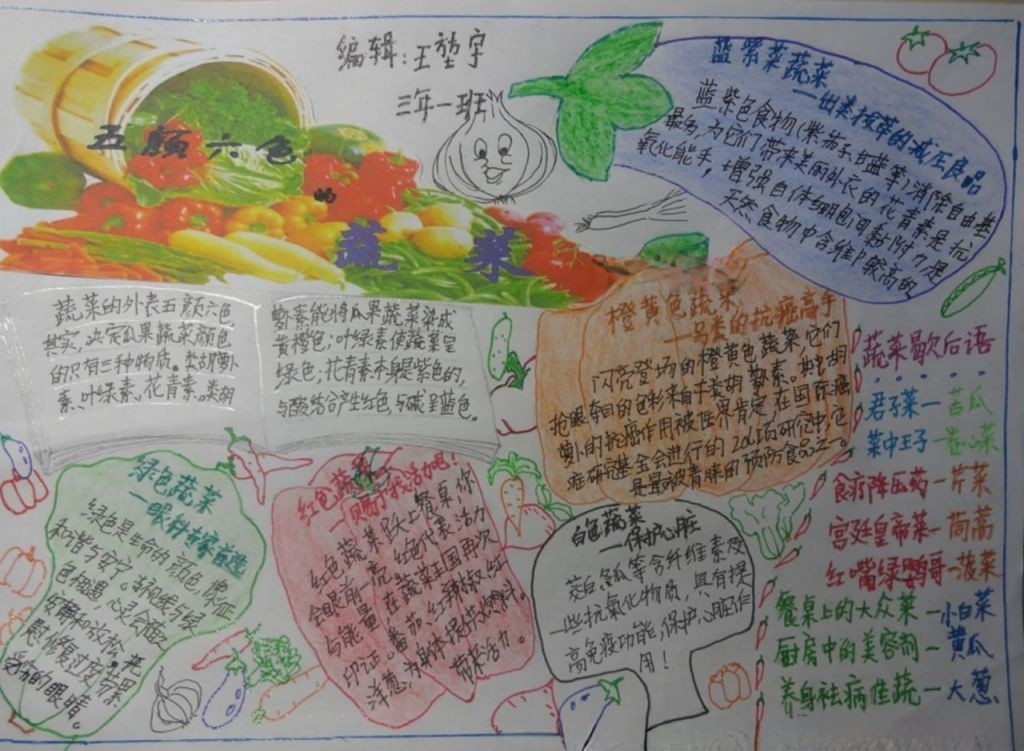 编辑:王堃宇
三年一班
五颜六色
的
蔬菜
蓝紫菜蔬菜
蓝紫色食物(紫茄子甘蓝等)消除自由基
最为,为它们带来美丽外衣的花青素是抗
氧化能手,增强自体细胞间黏附力是
天然食物中含维P较高的
蔬菜的外表五颜六色
其实,决定瓜果蔬菜颜色
的只有三种物质。类胡萝卜
素、叶绿素、花青素。类胡
萝素能将瓜果蔬菜染成
黄橙色;叶绿素使蔬菜呈
绿色;花青素本身是紫色的,
与酸结合产生红色,与碱呈蓝色。
橙黄色蔬菜
—另类的抗癌高手
闪亮登场的橙黄色蔬菜,它们
抢眼夺目的色彩来自于类胡萝素。类胡
萝卜的抗癌作用被世界肯定在国际癌
症研究基金会进行的201项研究中,它
是最被青睐的预防食品之一。
蔬菜歇后语
君子菜—苦瓜
菜中王子—卷心菜
食疗降压药—芹菜
宫廷皇帝菜—茼蒿
红嘴绿鹦哥—菠菜
餐桌上的大众菜—小白菜
厨房中的美容剂—黄瓜
养身祛病佳蔬—大葱
绿色蔬菜
—眼科专家首选
绿色是生命的颜色,象征
和谐与安宁。
色相遇,心灵会随
安静和放松,
慰修复过度劳累
的眼睛。
红色蔬菜
—赐予我活力吧!
红色蔬菜跃上餐桌,你
会眼前一亮,红色代表活力
与能量,在蔬菜王国再次
印证。番茄、红辣椒、红
洋葱,为身体提供燃料。
带来活力。
白色蔬菜
—保护心脏
茭白、冬瓜等含纤维素及
一些抗氧化物质,具有提
高免疫功能,保护心脏作
用!